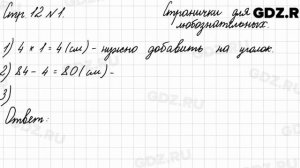 Стр 12 №1.
Странички для
любознательных.
1) 4 × 1 = 4 (см) - нужно добавить на уголок.
2) 84 - 4 = 80 (см) -
3)
Ответ:
GDZ.RU
GDZ.RU
GDZ.RU